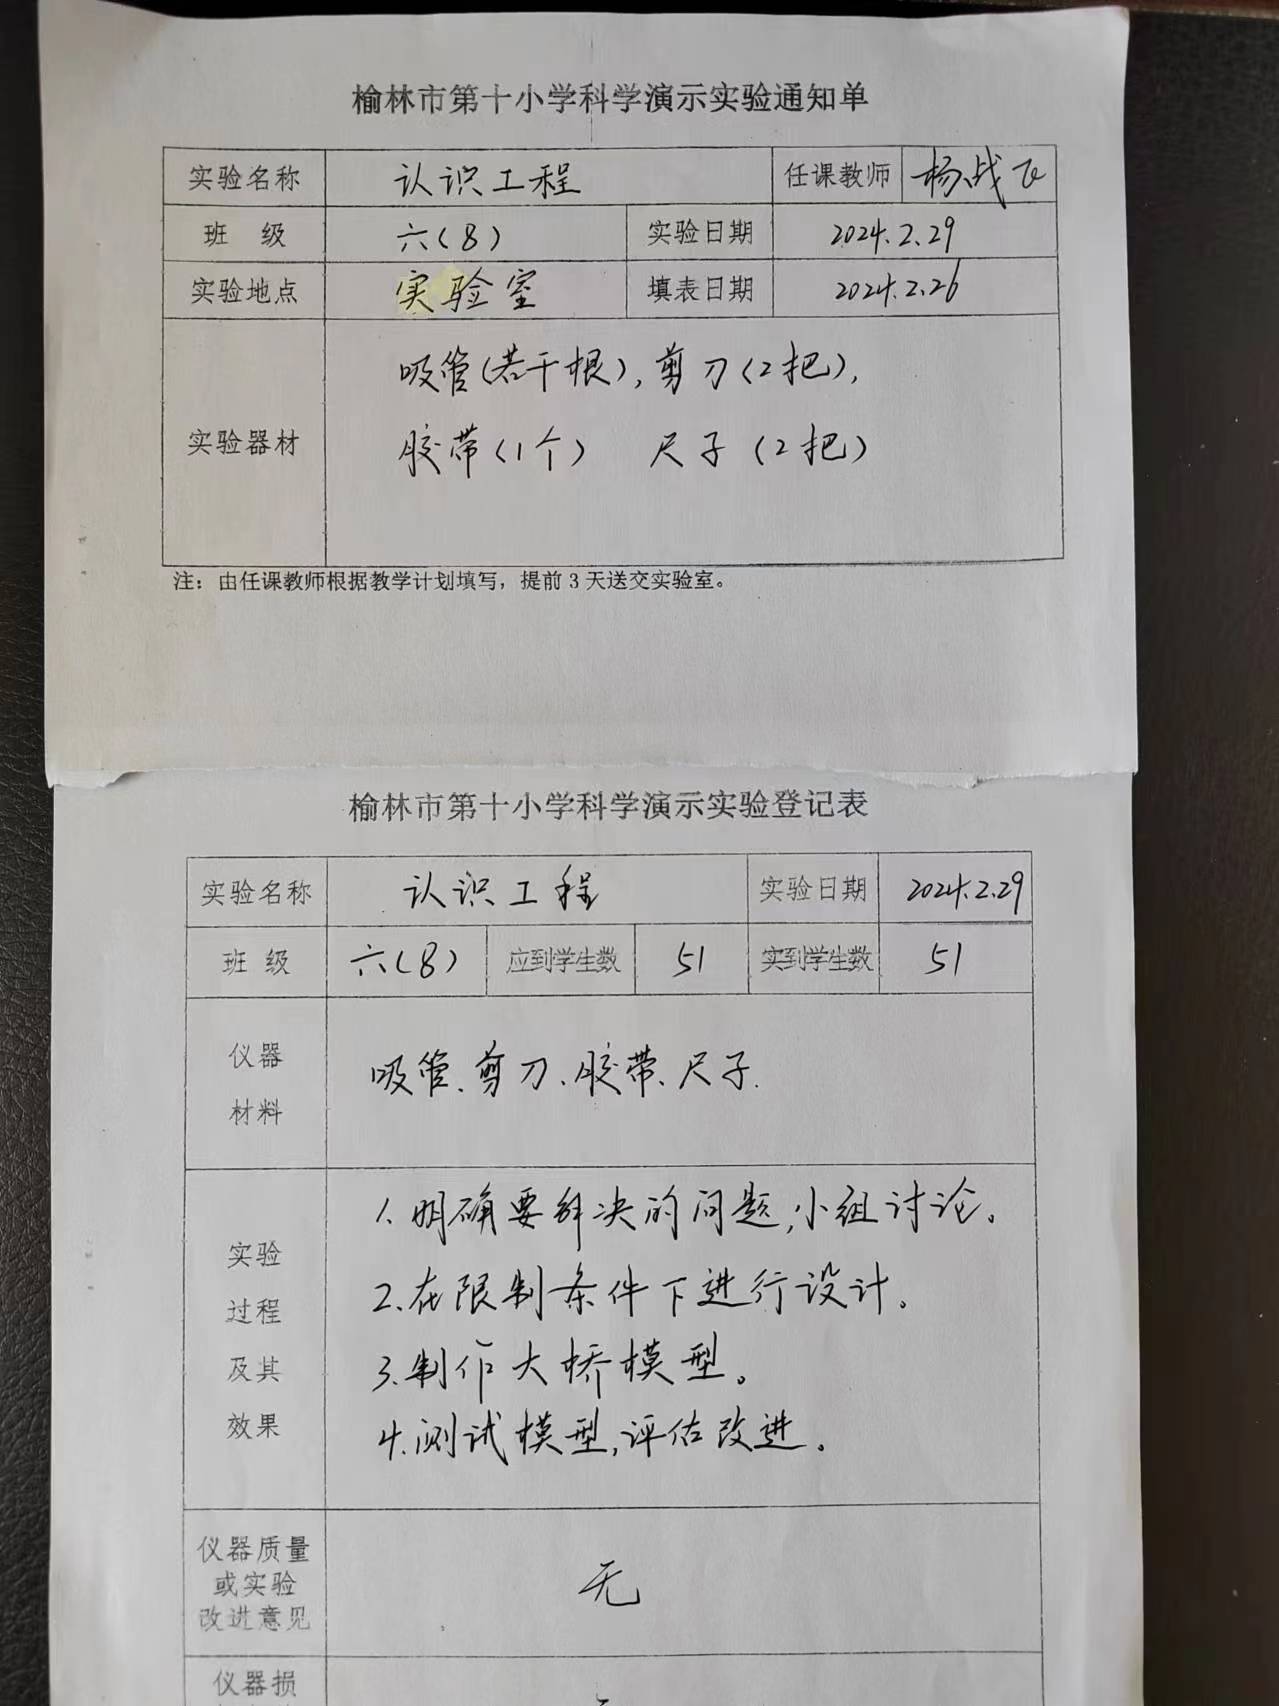 榆林市第十小学科学演示实验通知单
实验名称 认识工程 任课教师 杨战飞
班 级 六(8) 实验日期 2024.2.29
实验地点 实验室 填表日期 2024.2.26
实验器材
吸管(若干根),剪刀(2把),
胶带(1个) 尺子(2把)
注：由任课教师根据教学计划填写，提前3天送交实验室。
榆林市第十小学科学演示实验登记表
实验名称 认识工程 实验日期 2024.2.29
班 级 六(8) 应到学生数 51 实到学生数 51
仪器
材料
吸管、剪刀、胶带、尺子.
实验
过程
及其
效果
1.明确要解决的问题,小组讨论。
2.在限制条件下进行设计。
3.制作大桥模型。
4.测试模型,评估改进。
仪器质量
或实验
改进意见
无
仪器损